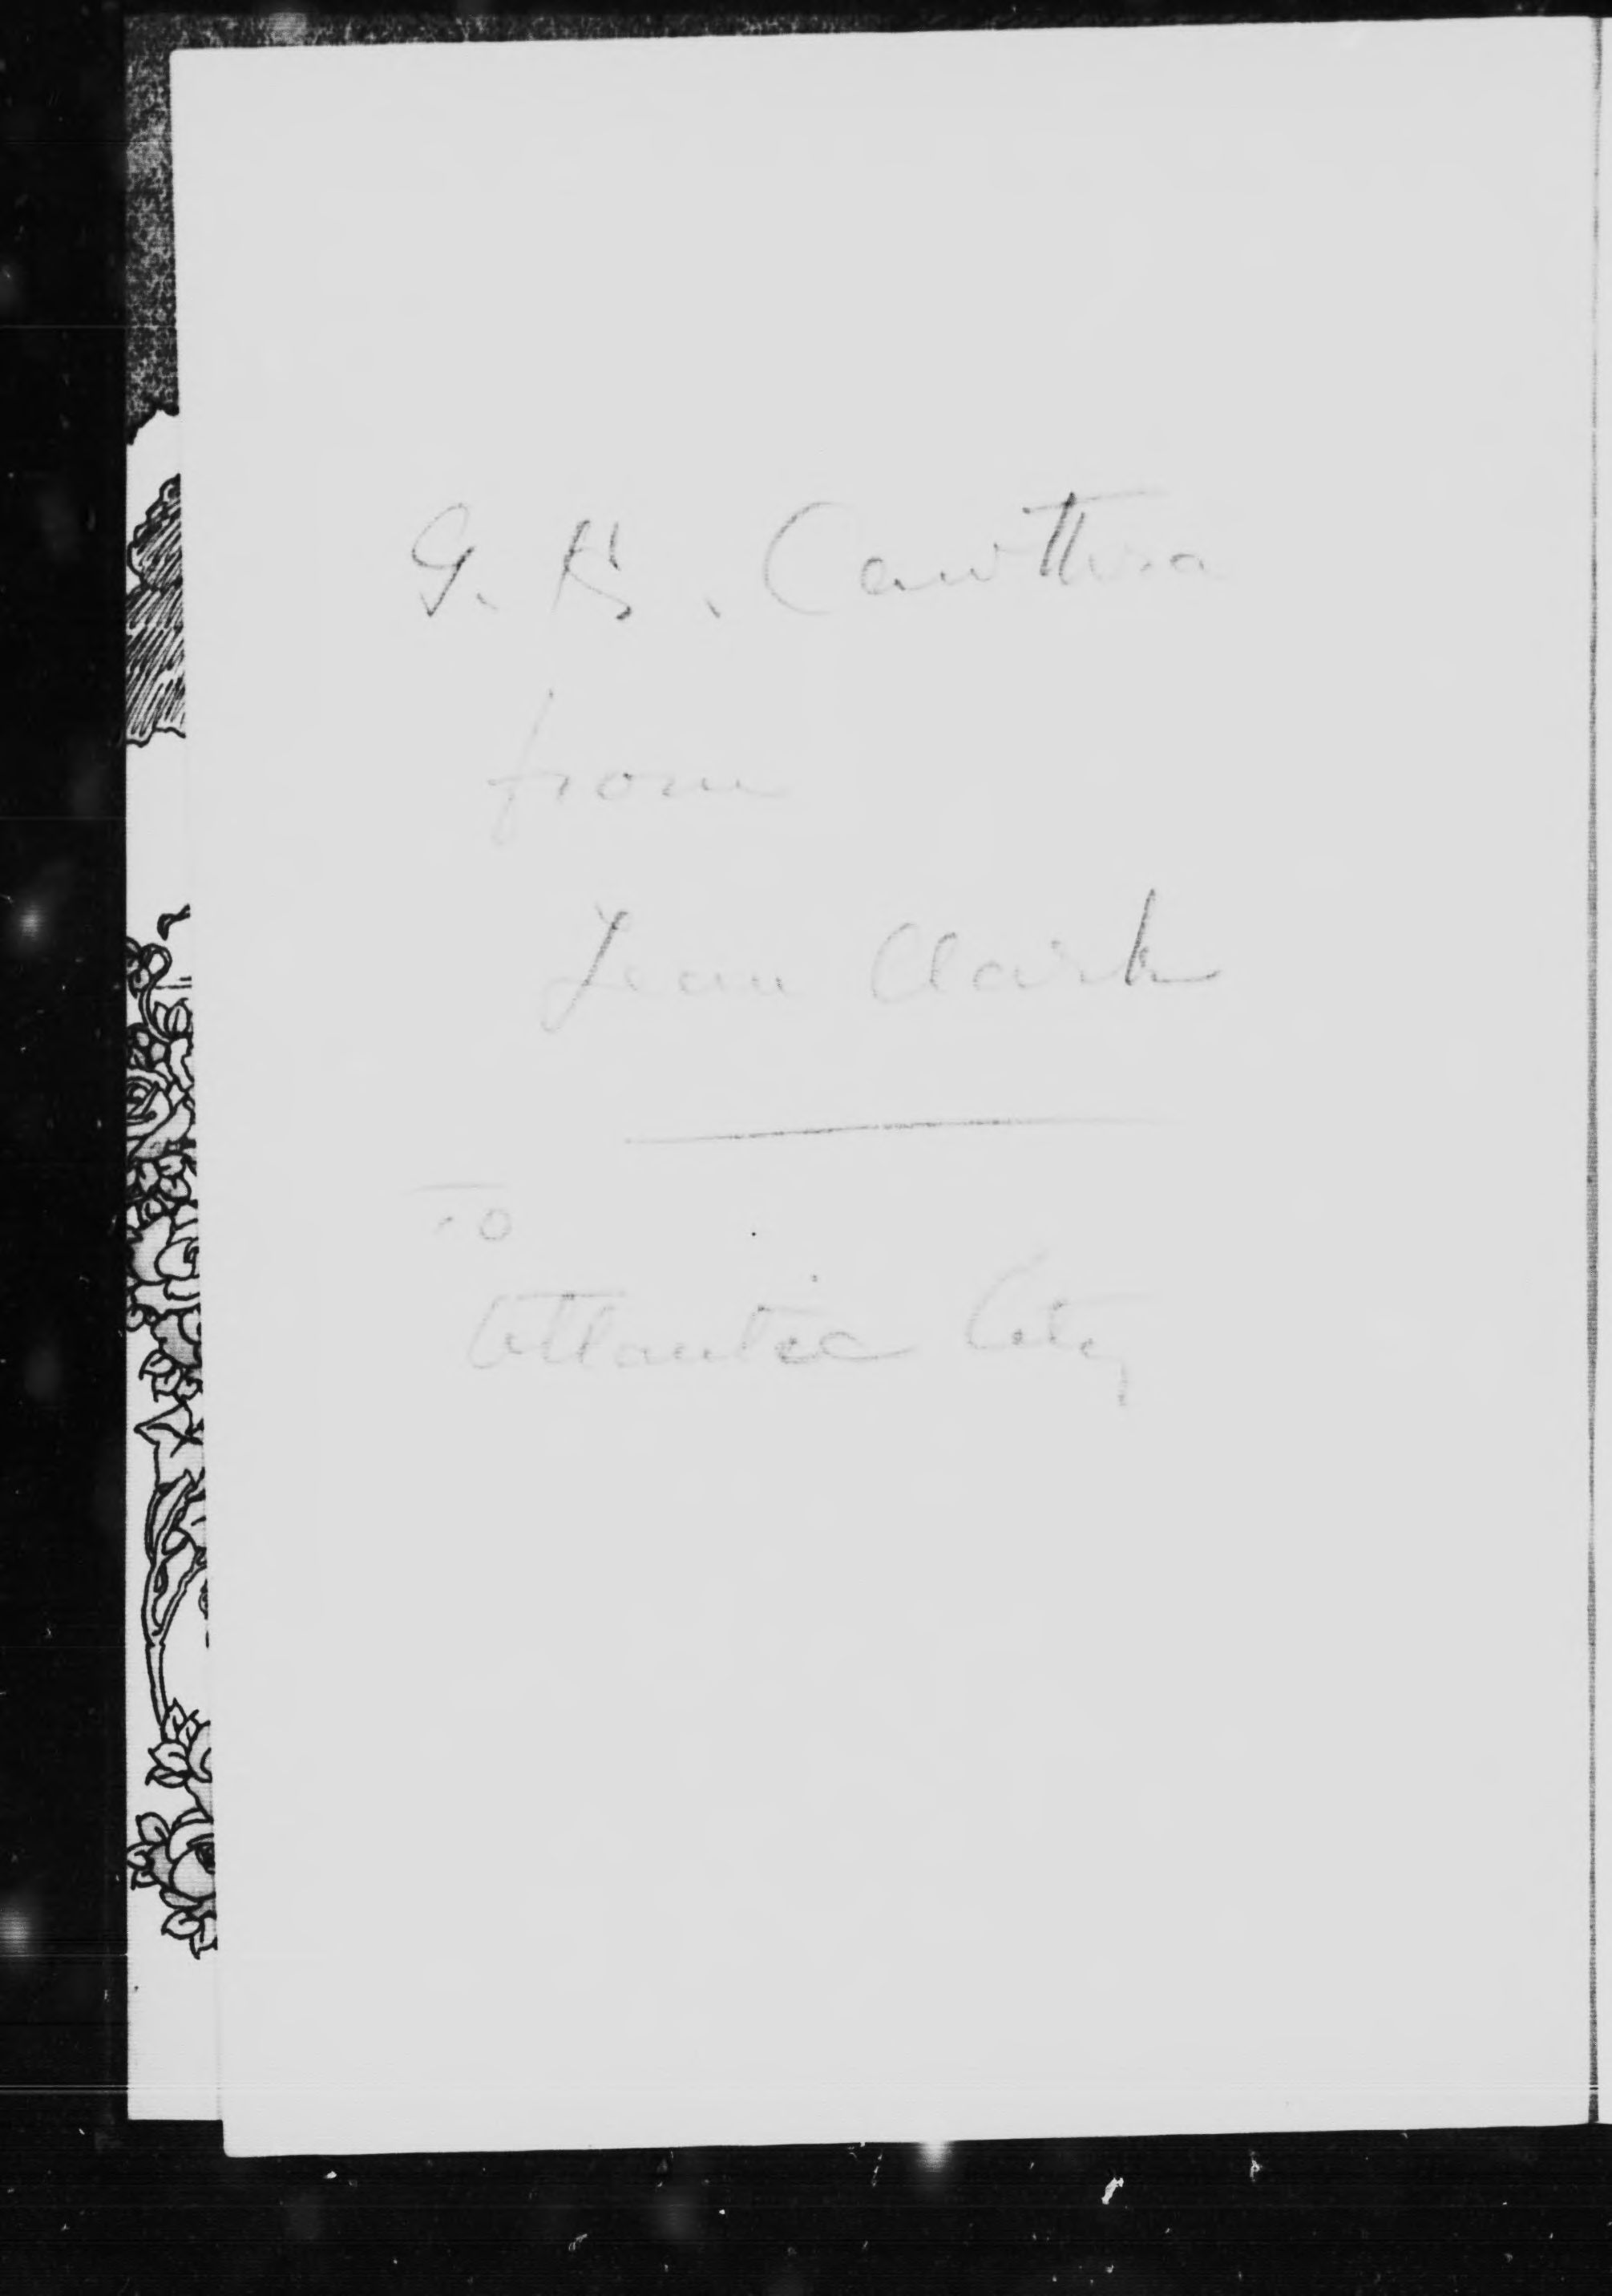 G. H. Cawthra
from
Jean Clark
To
Atlantic City